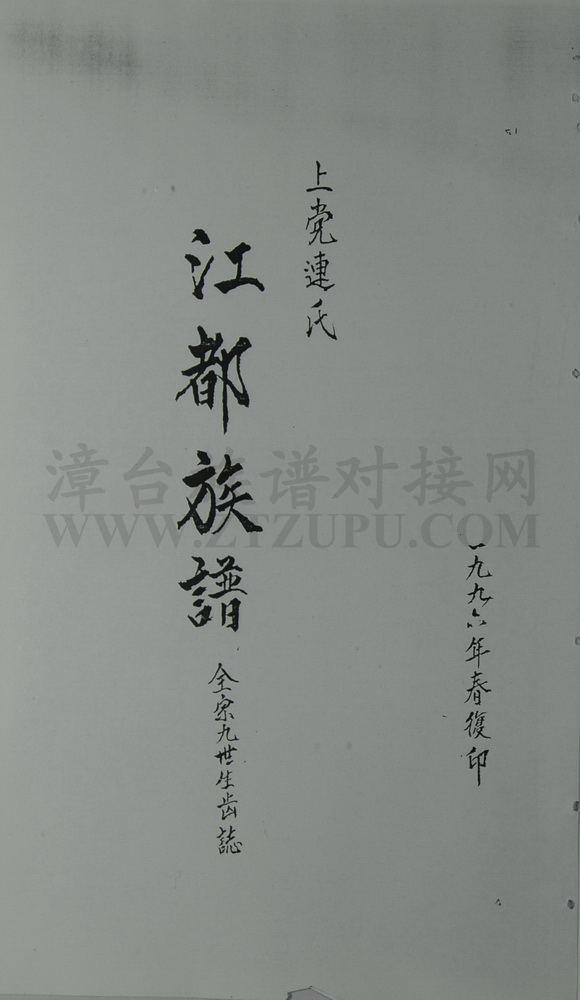 一九九六年春復印
上党連氏
江都族譜
全宗九世生齿誌
漳台族谱对接网
WWW.ZTZUPU.COM